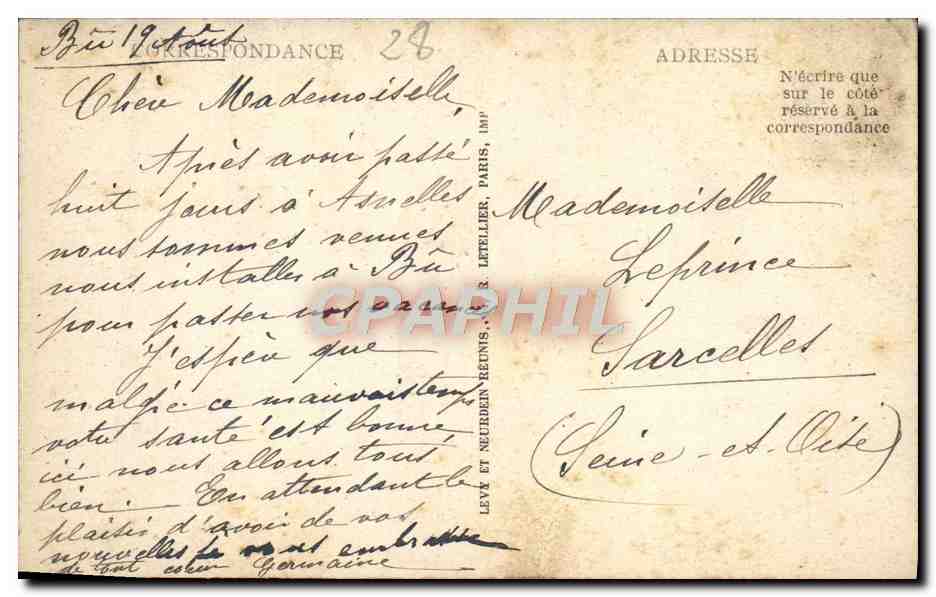 Bû 19 Août
28
CORRESPONDANCE
Chère Mademoiselle,
Après avoir passé
huit jours à Asnelles
nous sommes venues
nous installer à Bû
pour passer nos vacances
J'espère que
malgré ce mauvais temps
votre santé est bonne
ici nous allons tous
bien. En attendant le
plaisir d'avoir de vos
nouvelles je vous embrasse
de tout coeur Germaine
LEVY ET NEURDEIN REUNIS, R. LETELLIER, PARIS, IMP
ADRESSE
N'écrire que
sur le côté
réservé à la
correspondance
Mademoiselle
Leprince
Sarcelles
(Seine-et-Oise)
CPAPHIL